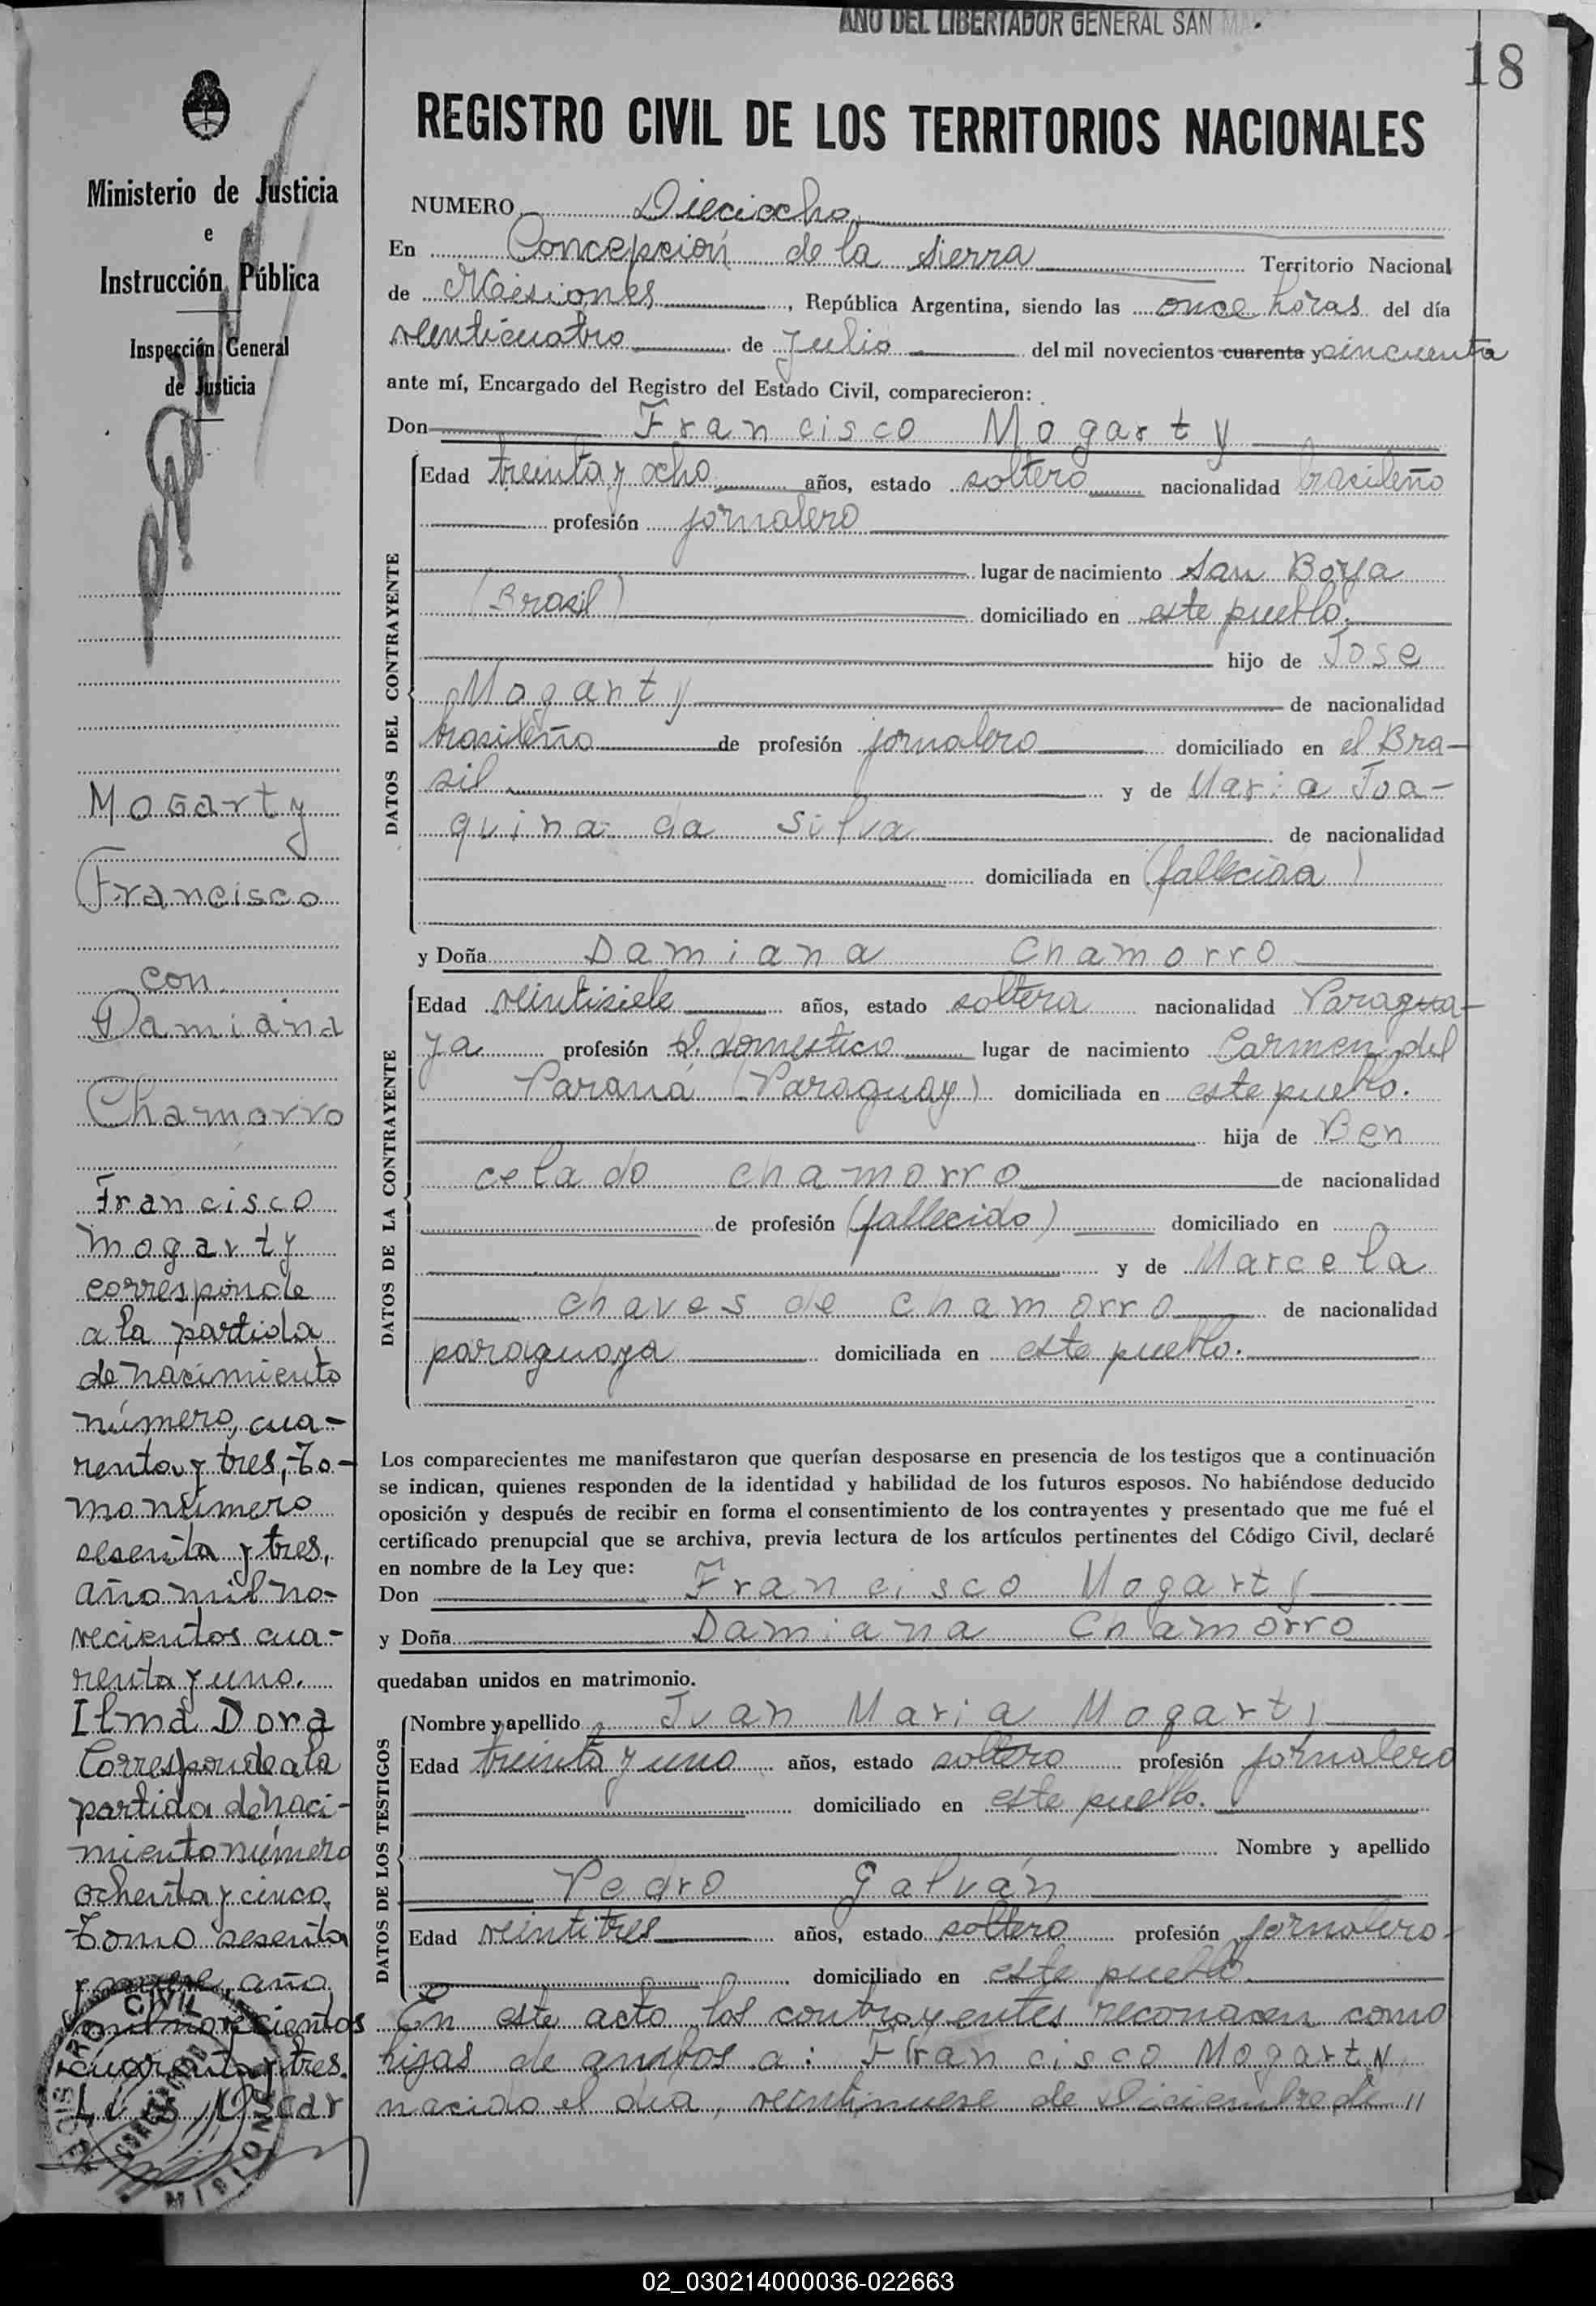 AÑO DEL LIBERTADOR GENERAL SAN
18
Ministerio de Justicia
e
Instrucción Pública
Inspección General
de Justicia
Mogarty
Francisco
con
Damiana
Chamorro
Francisco
Mogarty
corresponde
a la partida
de nacimiento
número, cua-
renta y tres, to-
mo número
sesenta y tres,
año mil no-
vecientos cua-
renta y uno.
Ilma Dora
Corresponde a la
partida de naci-
miento número
ochenta y cinco,
tomo sesenta
y año
mil novecientos
cuarenta y tres.
Luis Oscar
REGISTRO CIVIL
CONCEPCION
MISIONES
REGISTRO CIVIL DE LOS TERRITORIOS NACIONALES
NUMERO Dieciocho
En Concepción de la Sierra Territorio Nacional
de Misiones, República Argentina, siendo las once horas del día
venticuatro de Julio del mil novecientos cuarenta y cincuenta
ante mí, Encargado del Registro del Estado Civil, comparecieron:
Don Francisco Mogarty
DATOS DEL CONTRAYENTE
Edad treinta y ocho años, estado soltero nacionalidad brasileño
profesión jornalero
lugar de nacimiento San Borja
(Brasil) domiciliado en este pueblo.
hijo de Jose
Mogarty de nacionalidad
brasileño de profesión jornalero domiciliado en el Bra-
sil y de Maria Joa-
quina da Silva de nacionalidad
domiciliada en (fallecida)
y Doña Damiana Chamorro
DATOS DE LA CONTRAYENTE
Edad veintisiete años, estado soltera nacionalidad Paragua-
ya profesión S. domestico lugar de nacimiento Carmen del
Paraná (Paraguay) domiciliada en este pueblo.
hija de Ben
celado Chamorro de nacionalidad
de profesión (fallecido) domiciliado en
y de Marcela
Chaves de Chamorro de nacionalidad
paraguaya domiciliada en este pueblo.
Los comparecientes me manifestaron que querían desposarse en presencia de los testigos que a continuación
se indican, quienes responden de la identidad y habilidad de los futuros esposos. No habiéndose deducido
oposición y después de recibir en forma el consentimiento de los contrayentes y presentado que me fué el
certificado prenupcial que se archiva, previa lectura de los artículos pertinentes del Código Civil, declaré
en nombre de la Ley que:
Don Francisco Mogarty
y Doña Damiana Chamorro
quedaban unidos en matrimonio.
DATOS DE LOS TESTIGOS
Nombre y apellido Juan Maria Mogarty
Edad treinta y uno años, estado soltero profesión jornalero
domiciliado en este pueblo.
Nombre y apellido
Pedro Galván
Edad veintitres años, estado soltero profesión jornalero.
domiciliado en este pueblo
En este acto los contrayentes reconocen como
hijos de ambos a: Francisco Mogarty
nacido el dia, veintinueve de Diciembre de "
02_030214000036-022663